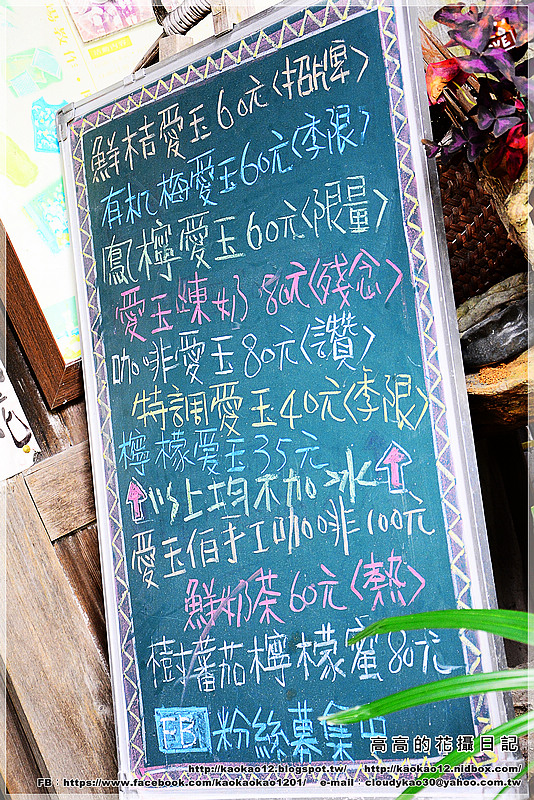 鮮桔愛玉60元<招牌>
有机梅愛玉60元<季限>
鳳檸愛玉60元<限量>
愛玉凍奶80元<殘念>
咖啡愛玉80元<讚>
特調愛玉40元<季限>
檸檬愛玉35元
以上均不加冰
愛玉伯手工咖啡100元
鮮奶茶60元<熱>
樹蕃茄檸檬蜜80元
FB 粉絲募集中
高高的花攝日記
http://kaokao12.blogspot.tw/ http://kaokao12.nidbox.com/
FB：https://www.facebook.com/kaokao1201/ e-mail：cloudykao30@yahoo.com.tw